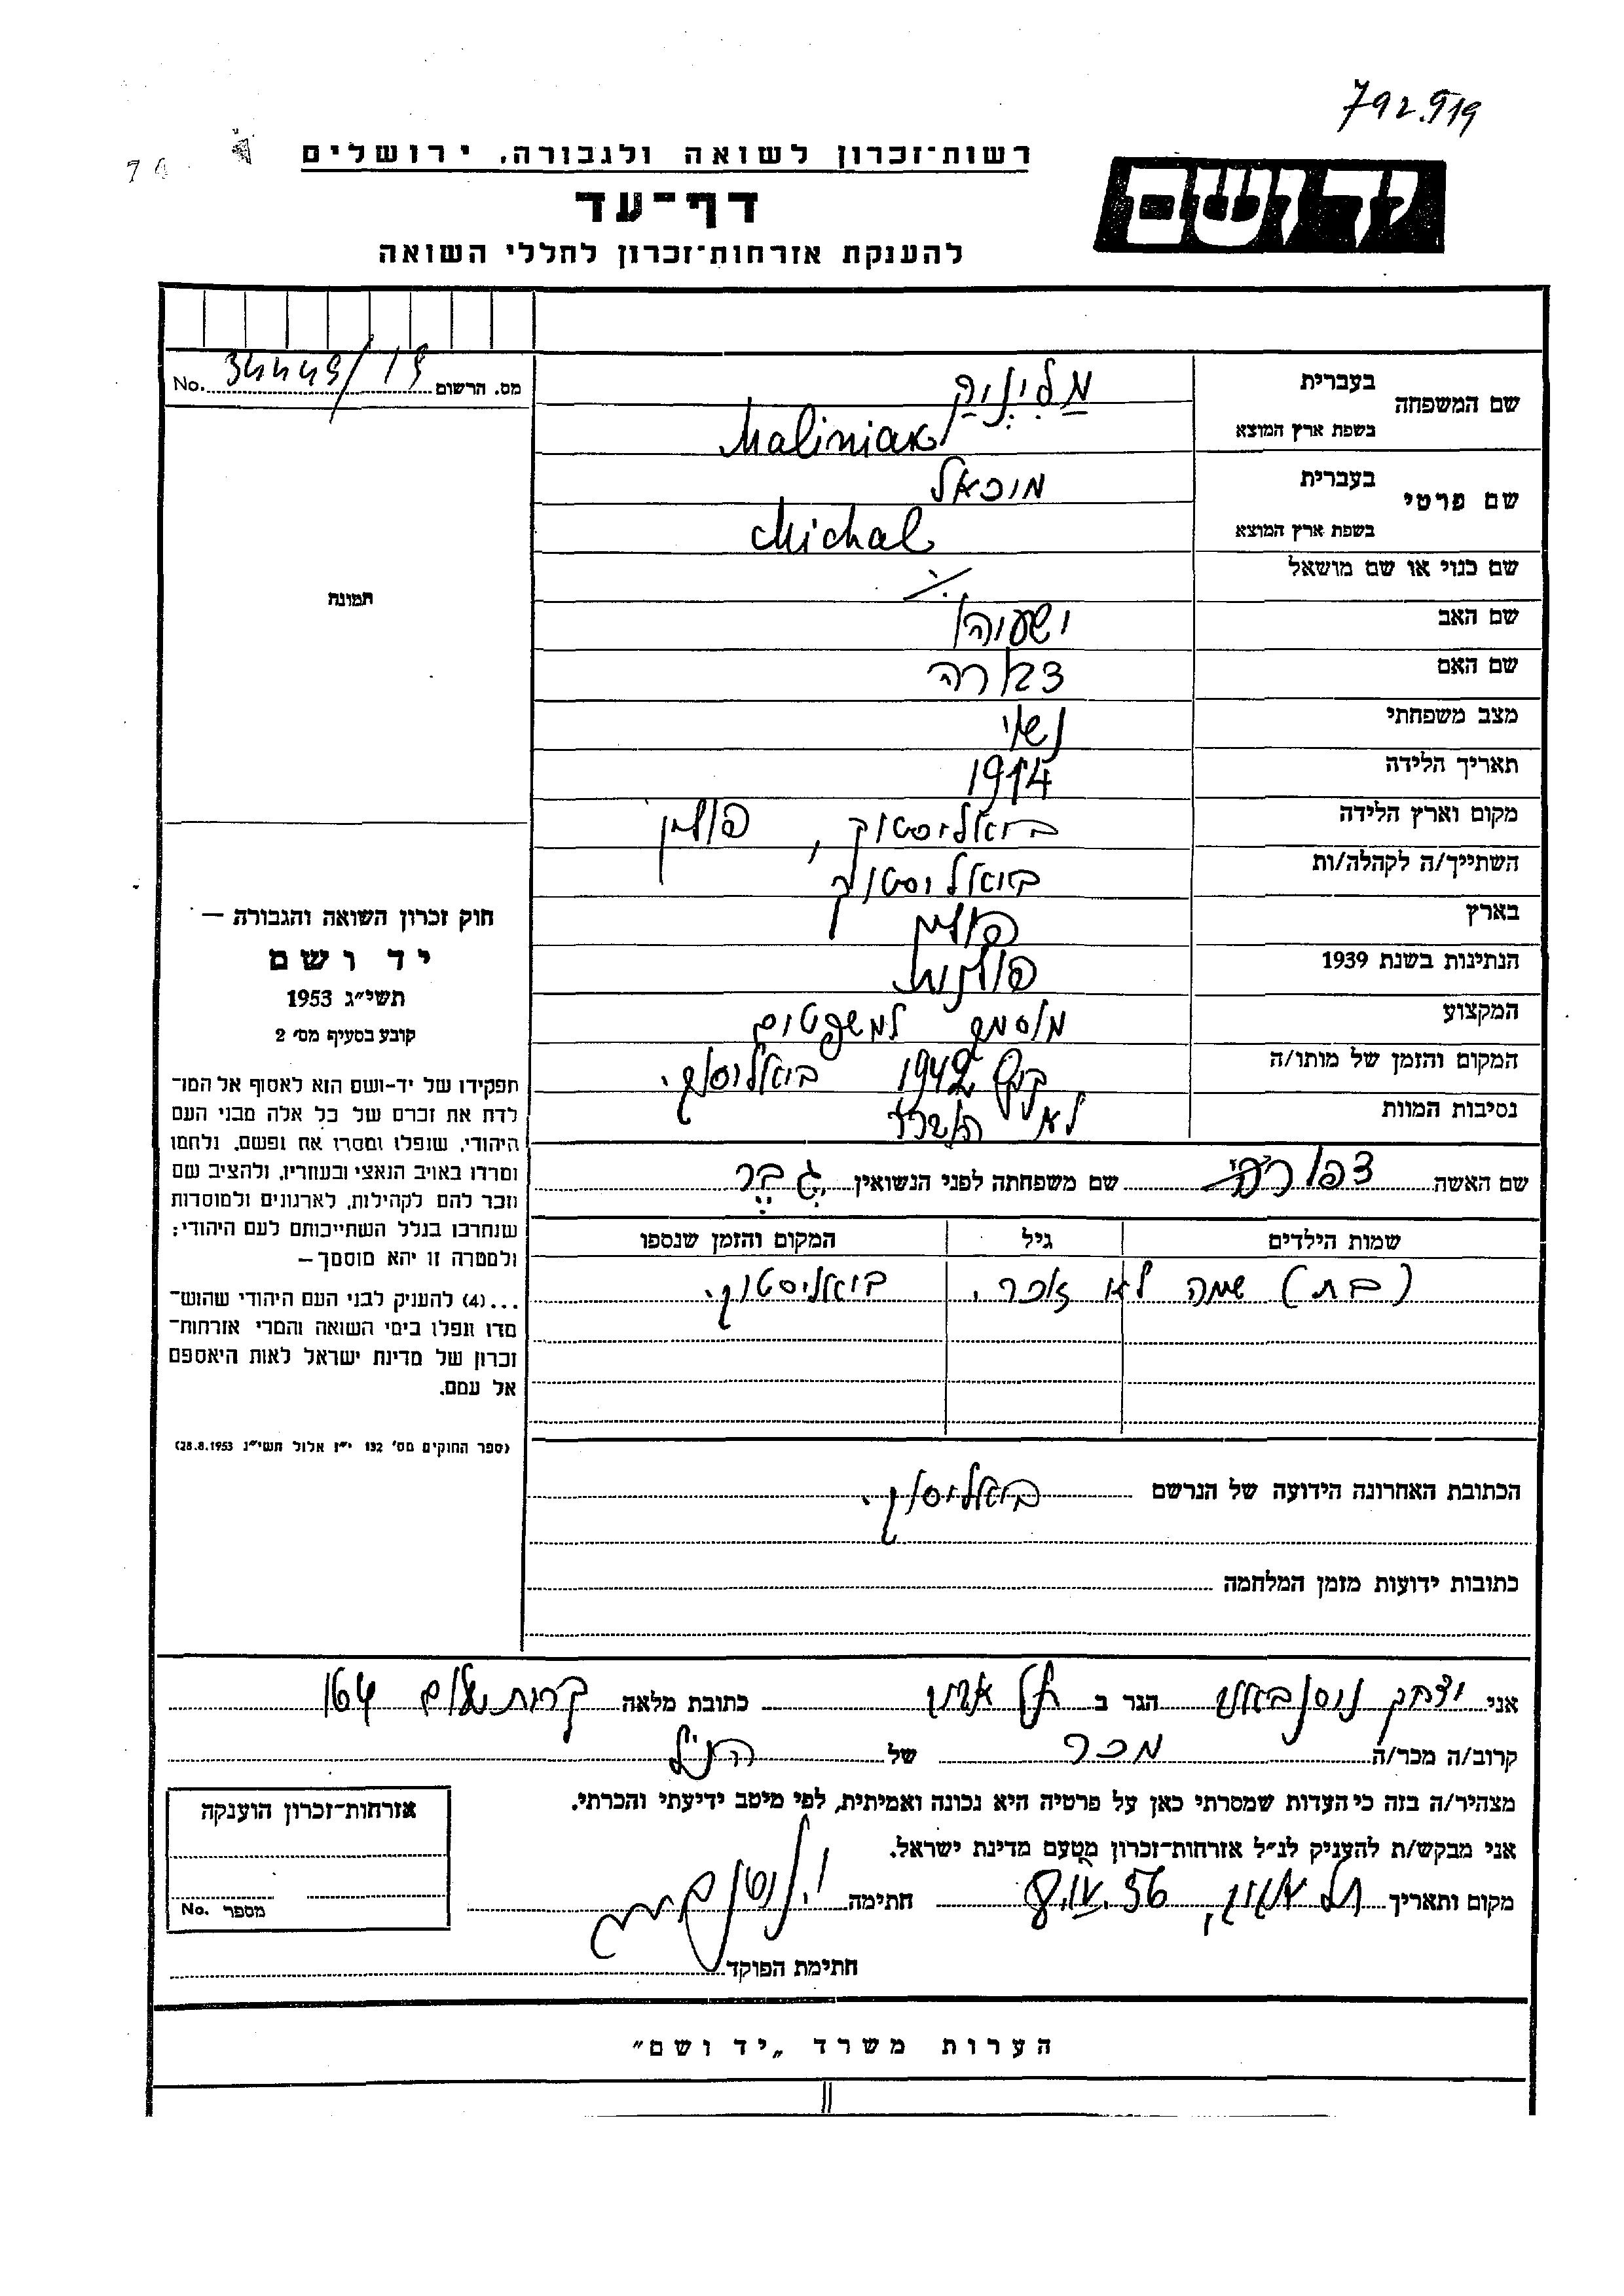 792.919
רשות־זכרון לשואה ולגבורה. ירושלים
יד ושם
דף־עד
להענקת אזרחות־זכרון לחללי השואה
No. 34449/19 מס. הרשום
שם המשפחה בעברית מַלִינְיַק
בשפת ארץ המוצא Maliniak
שם פרטי בעברית מיכאל
בשפת ארץ המוצא Michal
שם כנוי או שם מושאל
שם האב ישעיהו
שם האם דבורה
מצב משפחתי נשוי
תאריך הלידה 1914
מקום וארץ הלידה ביאליסטוק, פולין
השתייך/ה לקהלה/ות ביאליסטוק
בארץ פולין
הנתינות בשנת 1939 פולנית
המקצוע מוסמך למשפטים
המקום והזמן של מותו/ה בקיץ 1942 ביאליסטוק.
נסיבות המוות לא
שם האשה צפורה שם משפחתה לפני הנשואין
שמות הילדים גיל המקום והזמן שנספו
(בת) שמה לא זכור. ביאליסטוק.
הכתובת האחרונה הידועה של הנרשם ביאליסטוק.
כתובות ידועות מזמן המלחמה
תמונה
חוק זכרון השואה והגבורה —
יד ושם
תשי״ג 1953
קובע בסעיף מס׳ 2
תפקידו של יד-ושם הוא לאסוף אל המו־
לדת את זכרם של כל אלה מבני העם
היהודי, שנפלו ומסרו את נפשם, נלחמו
ומרדו באויב הנאצי ובעוזריו, ולהציב שם
וזכר להם לקהילות, לארגונים ולמוסדות
שנחרבו בגלל השתייכותם לעם היהודי;
ולמטרה זו יהא מוסמך—
...(4) להעניק לבני העם היהודי שהוש־
מדו ונפלו בימי השואה והמרי אזרחות־
זכרון של מדינת ישראל לאות היאספם
אל עמם.
(ספר החוקים מס׳ 132 י״ז אלול תשי״ג 28.8.1953)
אני יצחק ניסנבאום הגר ב תל אביב כתובת מלאה קרית שלום 164
קרוב/ה מכר/ה מכר של הנ״ל
מצהיר/ה בזה כי העדות שמסרתי כאן על פרטיה היא נכונה ואמיתית, לפי מיטב ידיעתי והכרתי.
אני מבקש/ת להעניק לנ״ל אזרחות־זכרון מטעם מדינת ישראל.
מקום ותאריך תל אביב, חתימה
חתימת הפוקד
אזרחות־זכרון הוענקה
No. מספר
הערות משרד „יד ושם״